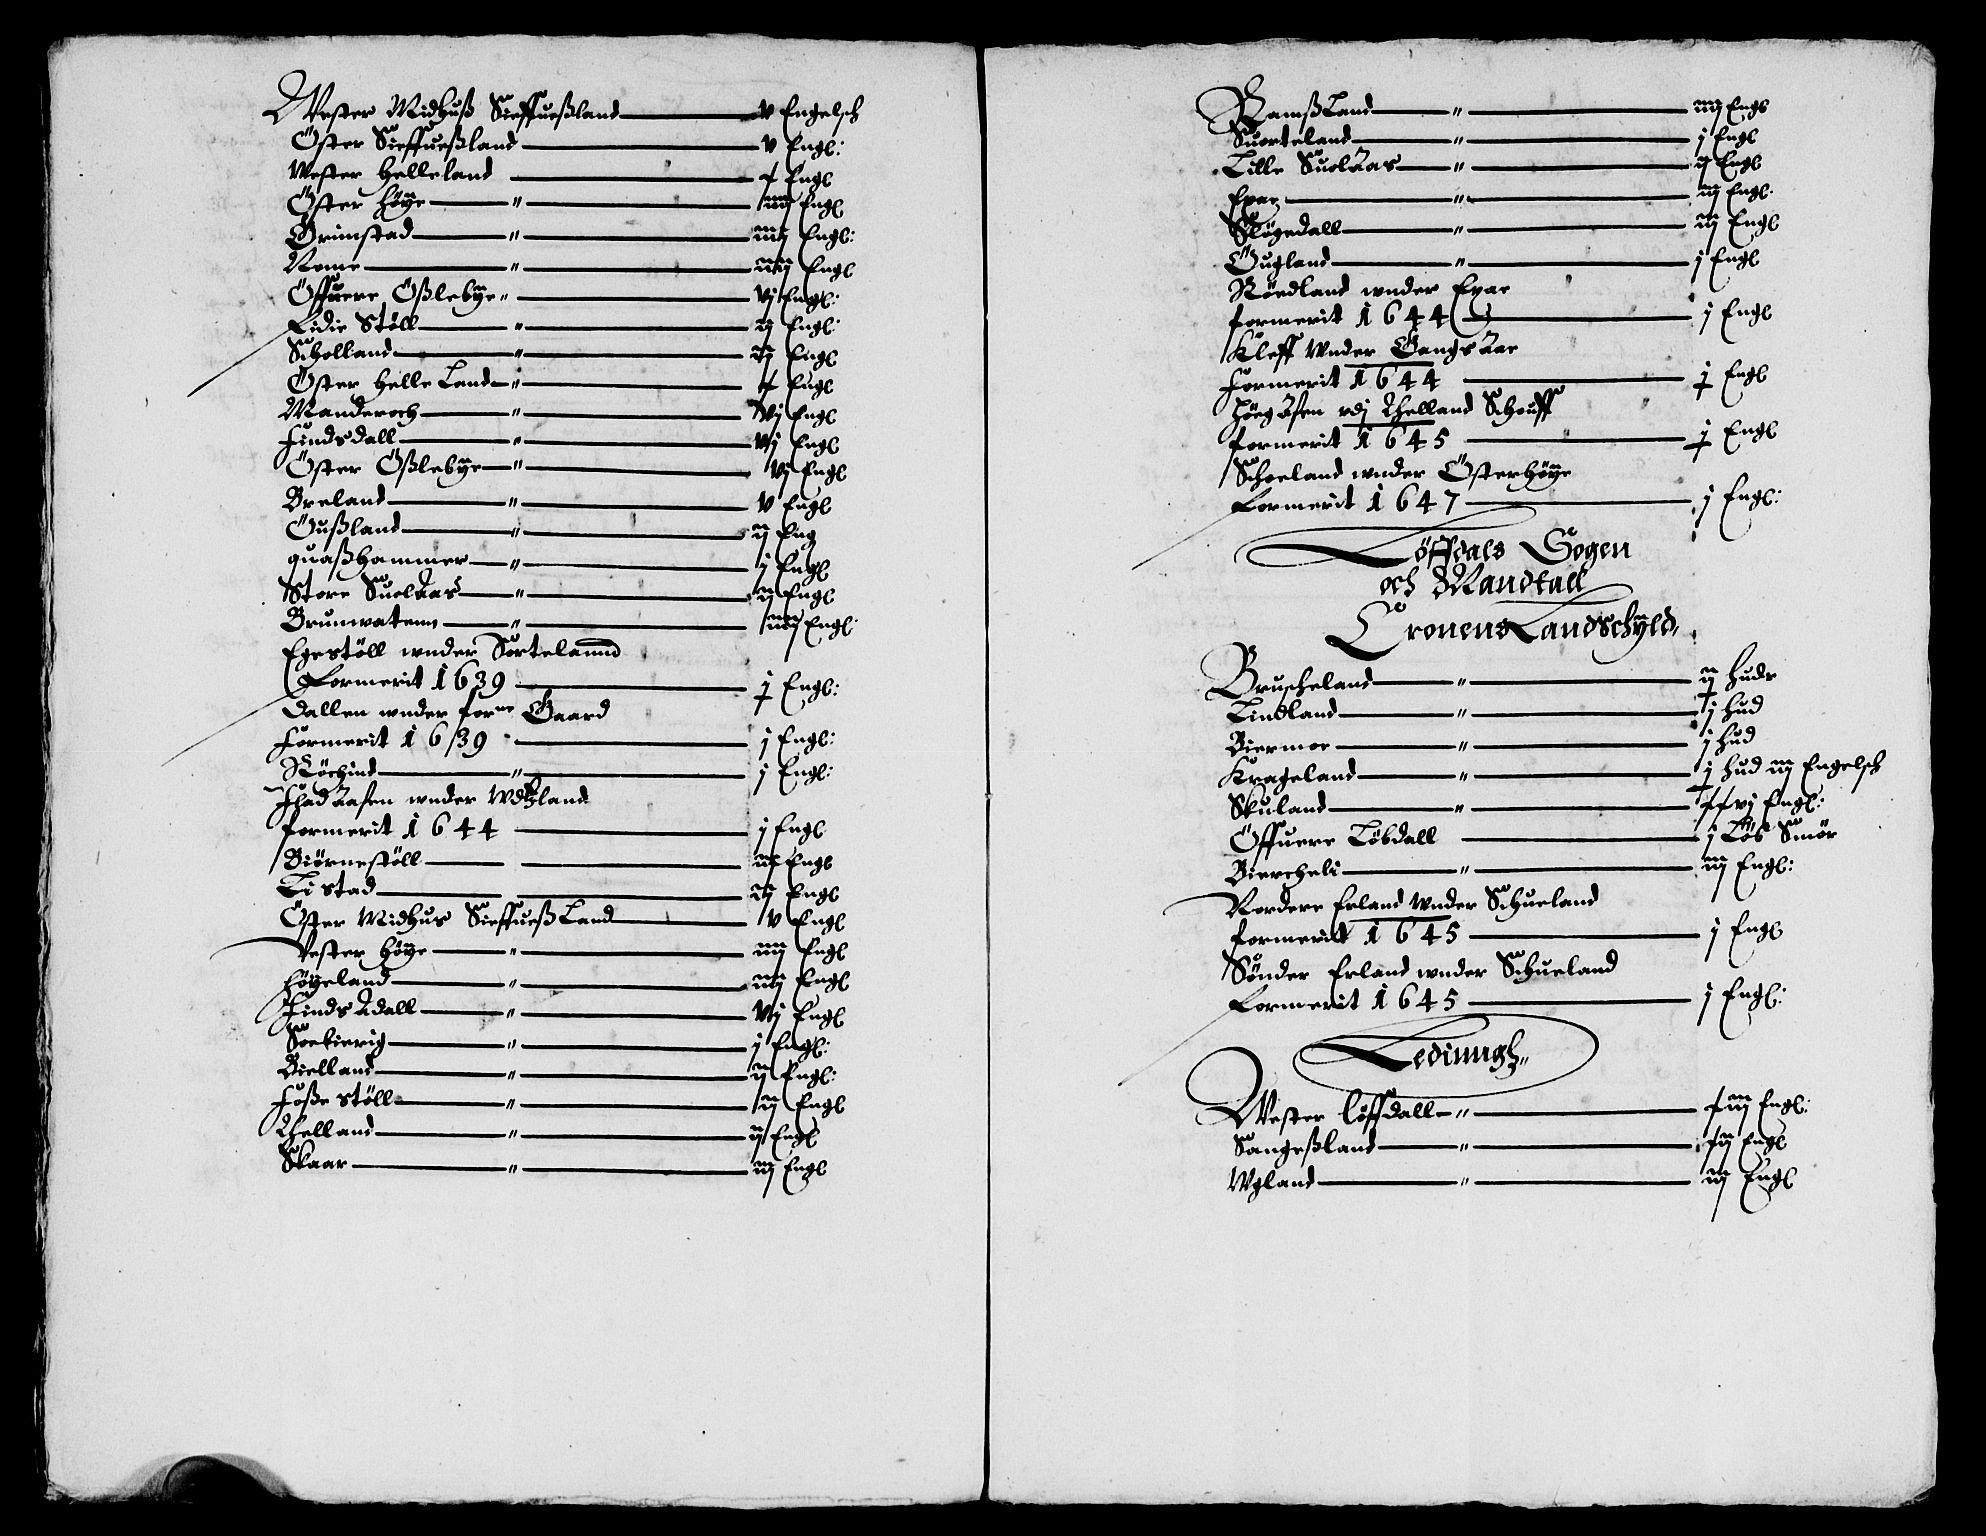 Wester Midhuß Sieffueßland v Engelsch
Öster Sieffueßland v Engl:
Wester Helleland Engl
Öster Höye " iiij Engl
Grimstad " iiij Engl:
Rome " iiij Engl
Öffuere Ößlebye " vj Engl:
Lidie Stöll " ij Engl:
Scholland " ij Engl
Öster Helle Land " Engl
Manderoch " vj Engl
Findsdall " vj Engl
Öster Ößlebye " vj Engl
Breland " v Engl
Öußland " ij Eng
quaßhammer " j Engl
Store Suolaas " ij Engl
Brunvatenn " iiij Engl:
Egestöll wnder Sortelannd
Formerit 1639 Engl:
Dallen wnder forne Gaard
Formerit 1639 j Engl:
Röchind " j Engl:
Fladaasen wnder
formerit 1644 j Engl
Biörnestöll Engl
Li stad ij Engl
Öster Midhus Sieffueß Land v Engl
Vester Höye " iiij Engl
Höyeland " iiij Engl
Findsadall " vj Engl
Soebierig " j Engl:
Bielland " ij Engl:
Foße stöll " iij Engl
Thelland " ij Engl
Skaar " iij Engl
Ramßland " iiij Engs
Suorteland " j Engl
Lille Suolaas " Engl
Epae " iij Engl:
Slögedall " iij Engl
Öugland " j Engl
Röedland wnder Epae
formerit 1644 j Engl
Kleff wnder Gangsaae
Formerit 1644 Engl
Högaasen vdj Thelland Schouff
formerit 1645 Engl
Schoeland wnder Österhöye
Formerit 1647 j Engl:
Löffdals Sogen
och Mandtall
Cronens Landschyld
Bruscheland " ij Hude
Lindland " j Hud
Biermoe " j Hud
Krageland " j Hud iij Engelsch
Skuland " vj Engl:
Öffuere Löbdall j Löb Smör
Biercheli " iij Engl:
Nordere Erland wnder Schueland
formerit 1645 j Engl
Sönder Erland wnder Schueland
Formerit 1645 j Engl:
Ledinngh
Wester Löffdall " iij Engl:
Sangeßland " ij Engl
Wgland " iij Engl